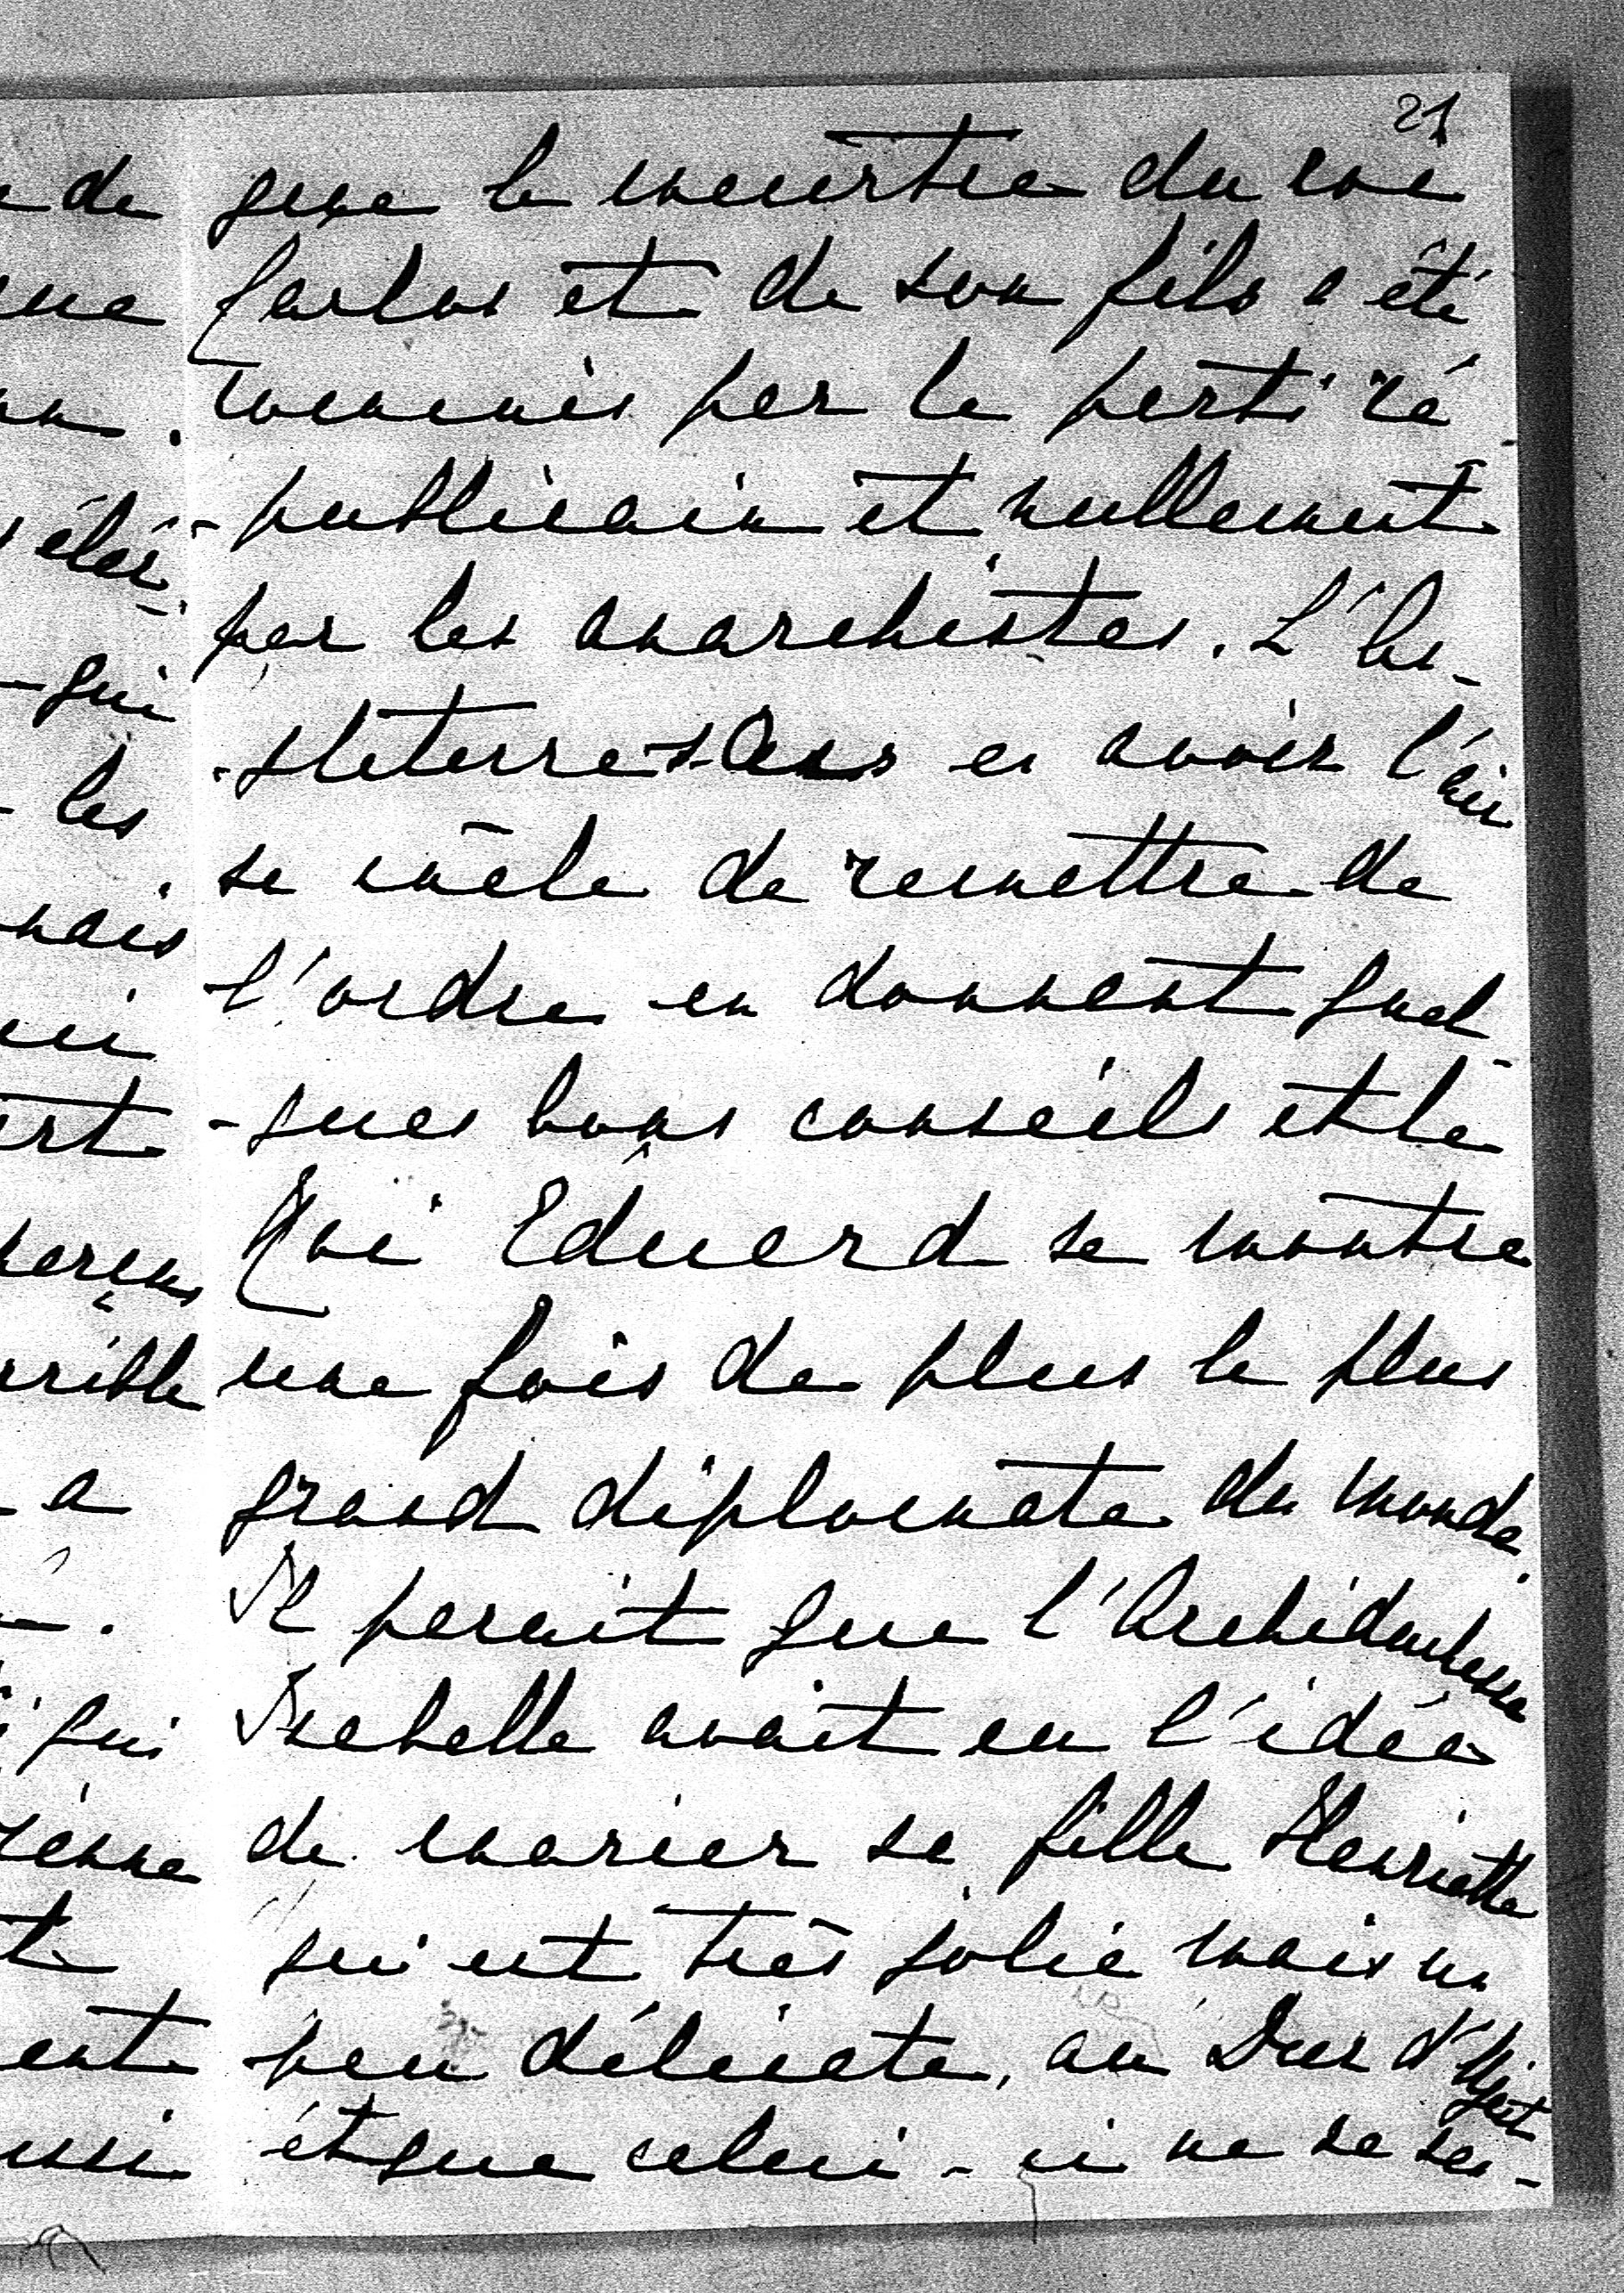 21
que le meurtre du roi
Carlos et de son fils a été
commis par le parti ré
-publicain et nullement
par les anarchistes. L'An-
-gleterre sans en avoir l'air
se mêle de remettre de
l'ordre en donnant quel-
-ques bons conseils et le
Roi Eduard se montre
une fois de plus le plus
grand diplomate du monde.
Il parait que l'Archiduchesse
Isabelle avait eu l'idée
de marier sa fille Henriette
qui est très jolie mais un
peu délicate, au Duc d'Ujest
et que celui-ci ne se sen-
de
que
élé-
-qui
les
mais
rible
a
qui
ent